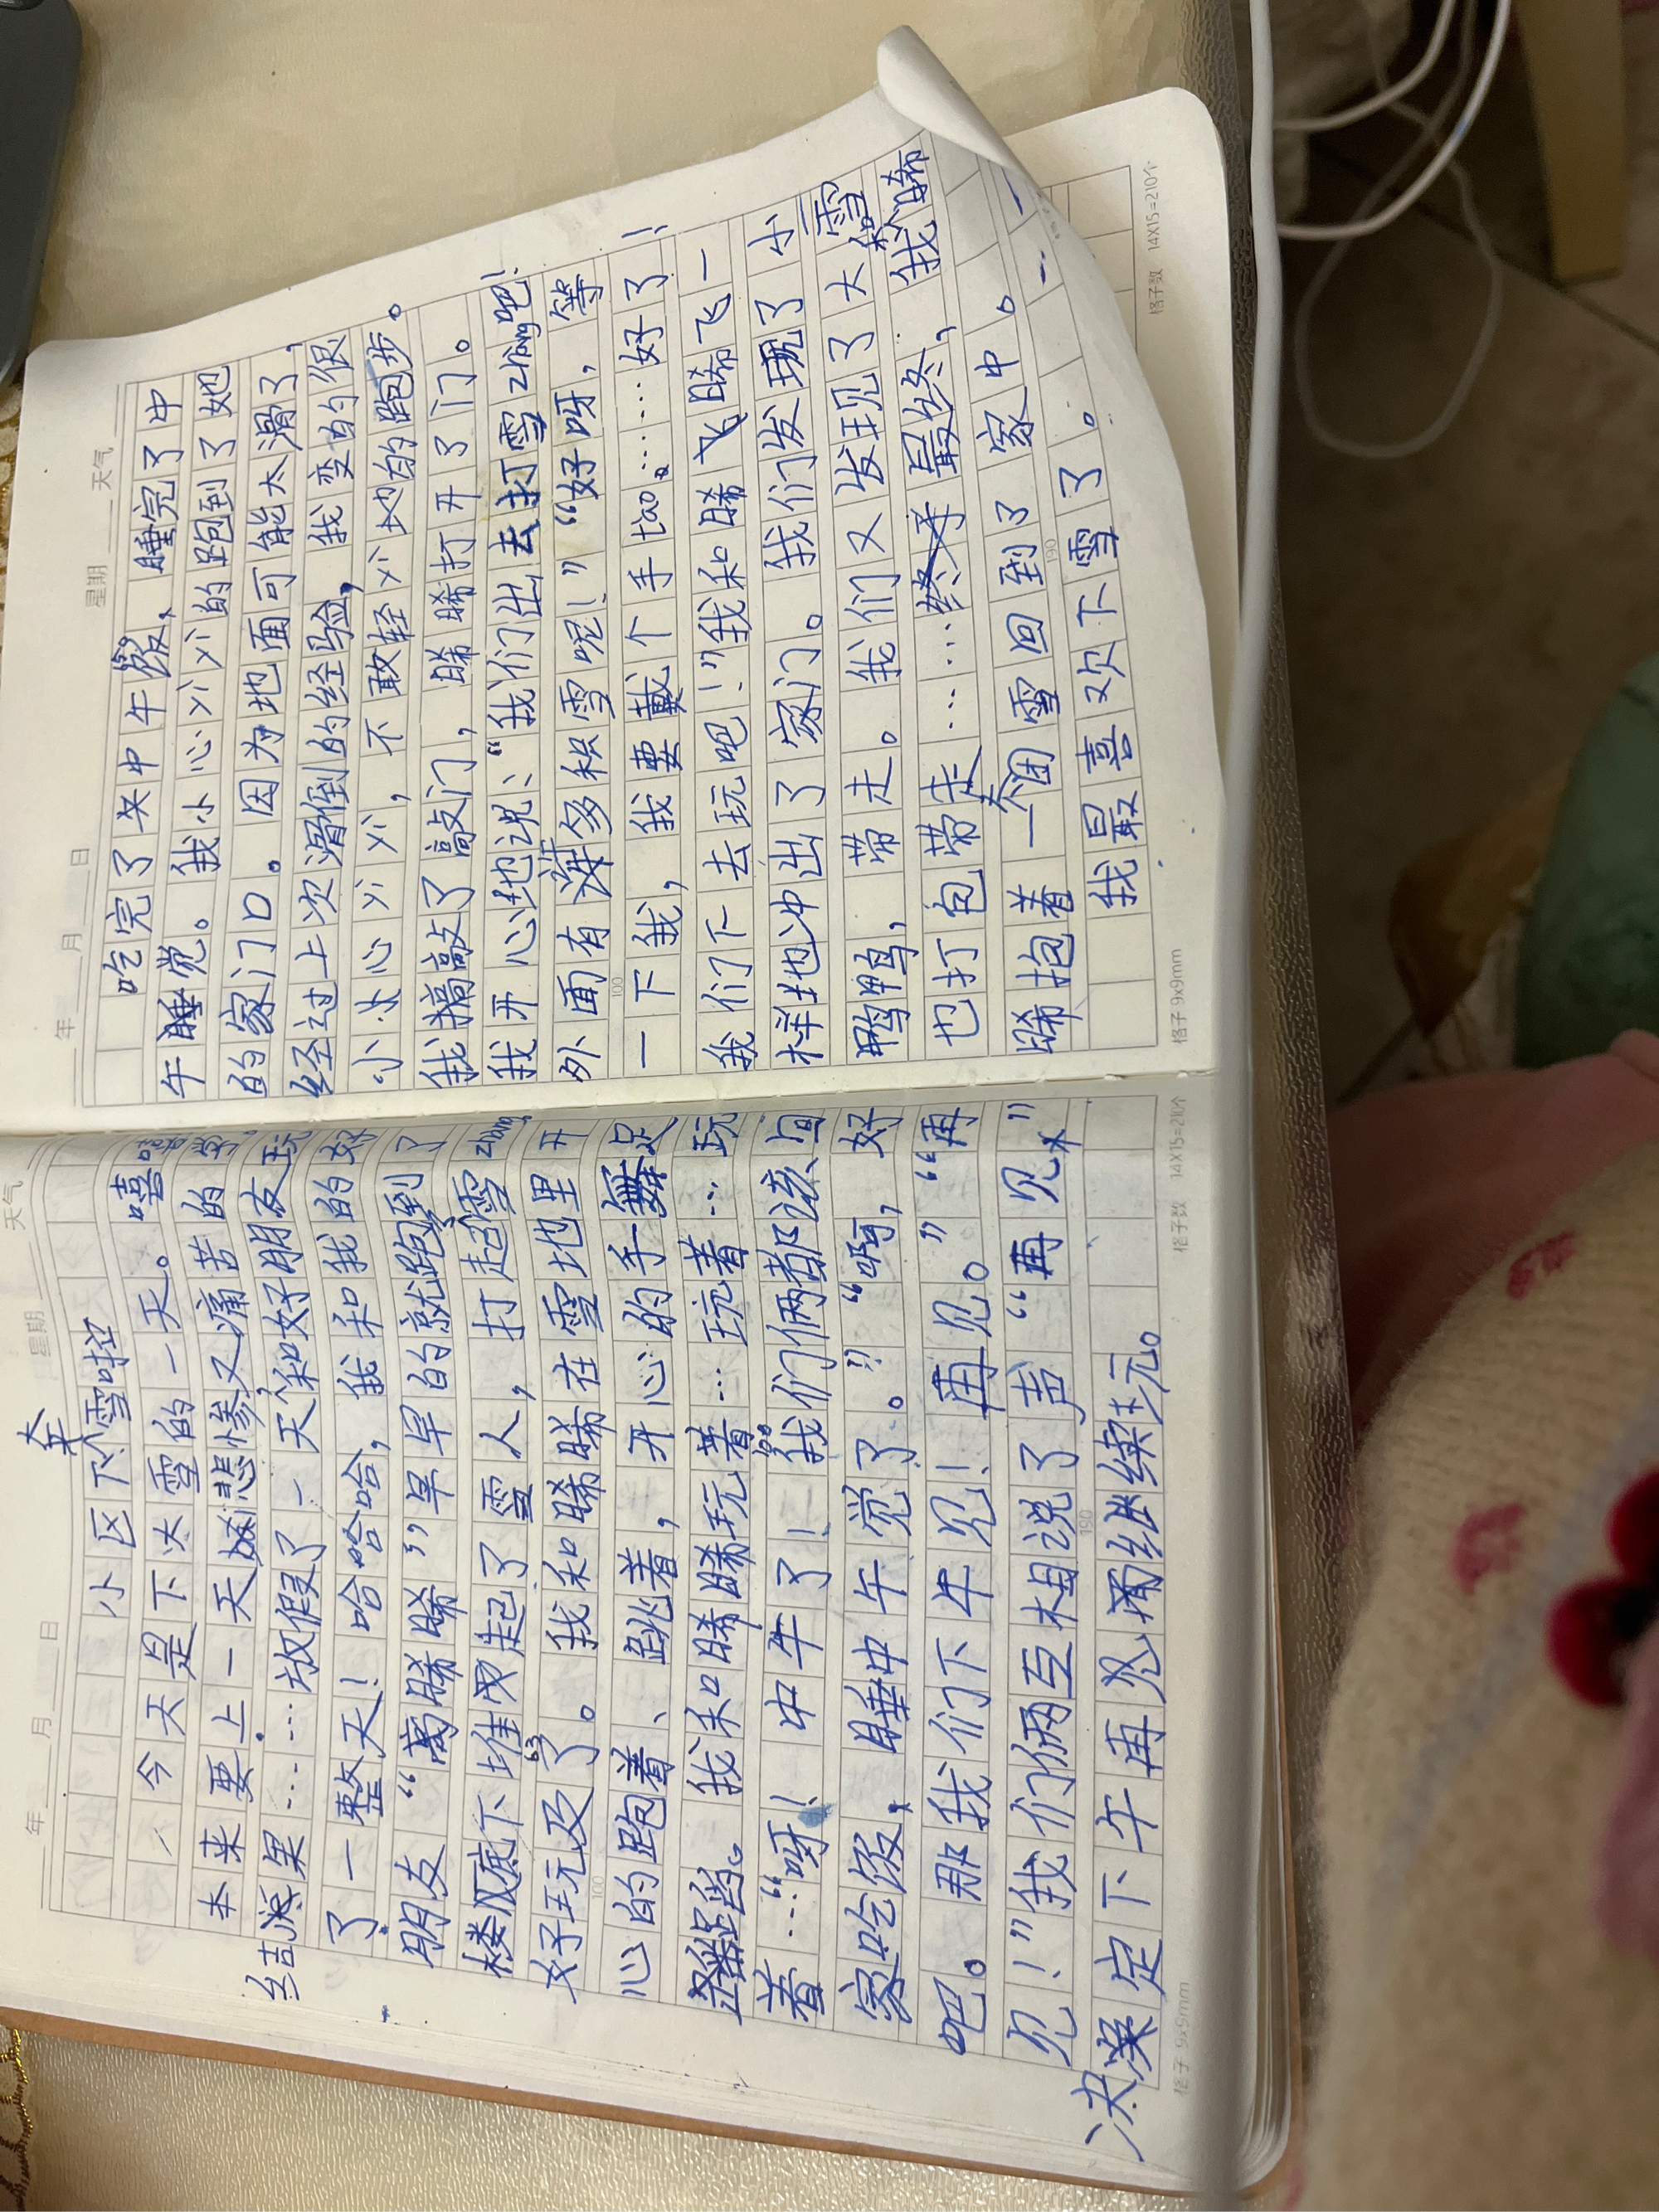 年 月 日 星期 天气
小区下雪啦
今天是下大雪的一天。嘻嘻
本来要上一天悲惨又痛苦的学。
结果……放假了一天和好朋友玩
了一整天！哈哈哈哈，我和我的好
朋友“离睎睎”早早的就跑到了
楼底下堆起了雪人，打起雪zhàng
好玩及了。我和睎睎在雪地里开
心的跑着、跳着，开心的手舞足
蹈。我和睎睎玩着…玩着…玩
着…“呀！中午了！我们俩都该回
家吃饭，睡中午觉了。”“啊，好
吧。那我们下午见！再见。”“再
见！”我们俩互相说了声“再见”
决定下午再见面继续玩。
格子 9x9mm 格子数 14X15=210个
年 月 日 星期 天气
吃完了中午饭，睡完了中
午睡觉。我小心义义的跑到了她
的家门口。因为地面可能太滑了，
经过上次滑倒的经验，我变的很
小心义义，不敢轻义地的跑步。
我敲了敲门，睎睎打开了门。
我开心地说：“我们出去打雪zhàng吧！
外面有许多积雪呢！”“好呀，等
一下我，我要戴个手tào。……好了！
我们下去玩吧！”我和睎飞睎飞一
样地冲出了家门。我们发现了小
鸭鸭，带走。我们又发现了大雪
也打包带走……最终，我和睎
睎抱着一个团雪回到了家中。
我最喜欢下雪了。
格子 9x9mm 190 格子数 14X15=210个